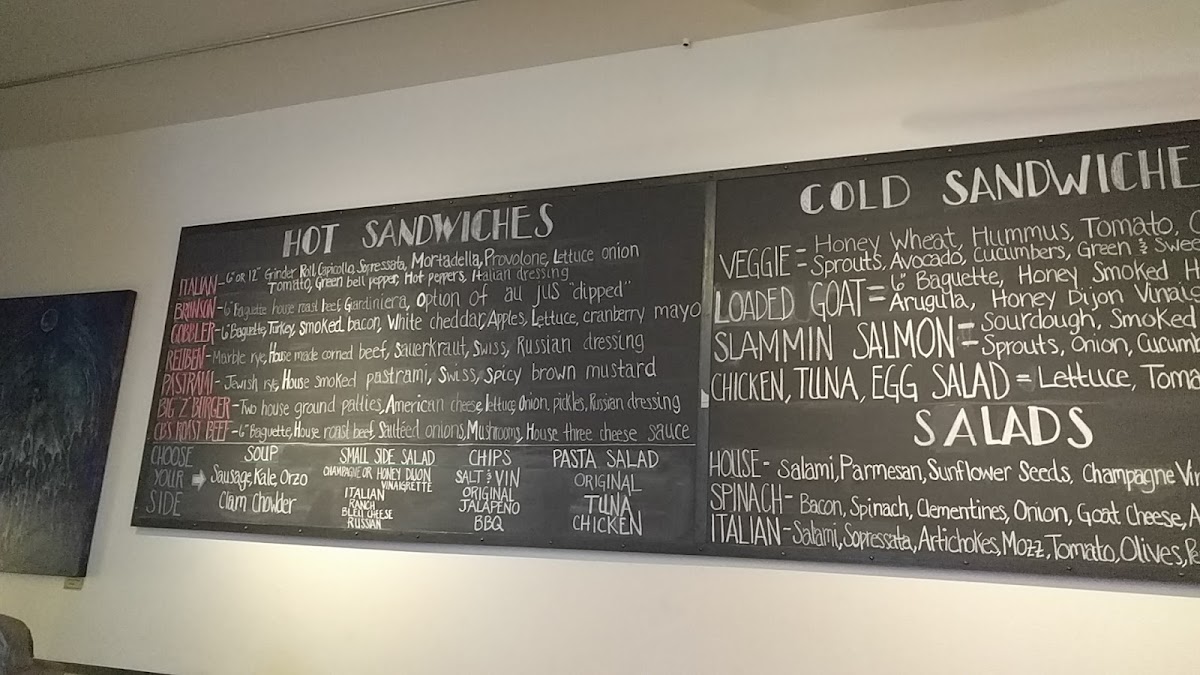 HOT SANDWICHES
ITALIAN - 6" OR 12" Grinder Roll, Capicollo, Sopressata, Mortadella, Provolone, Lettuce onion
Tomato, Green bell pepper, Hot peppers, Italian dressing
BRONSON - 6" Baguette house roast beef, Giardiniera, option of au jus "dipped"
GOBBLER - 6" Baguette, Turkey, smoked bacon, White cheddar, Apples, Lettuce, cranberry mayo
REUBEN - Marble rye, House made corned beef, Sauerkraut, Swiss, Russian dressing
PASTRAMI - Jewish rye, House smoked pastrami, Swiss, Spicy brown mustard
BIG "Z" BURGER - Two house ground patties, American cheese, lettuce, Onion, pickles, Russian dressing
CB'S ROAST BEEF - 6" Baguette, House roast beef, Sautéed onions, Mushrooms, House three cheese sauce
CHOOSE YOUR SIDE
SOUP
Sausage, Kale, Orzo
Clam Chowder
SMALL SIDE SALAD
CHAMPAGNE OR HONEY DIJON
VINAIGRETTE
ITALIAN
RANCH
BLEU CHEESE
RUSSIAN
CHIPS
SALT & VIN
ORIGINAL
JALAPEÑO
BBQ
PASTA SALAD
ORIGINAL
TUNA
CHICKEN
COLD SANDWICHE
VEGGIE = Honey Wheat, Hummus, Tomato,
Sprouts, Avocado, Cucumbers, Green & Swee
LOADED GOAT = 6" Baguette, Honey Smoked H
Arugula, Honey Dijon Vinai
SLAMMIN SALMON = Sourdough, Smoked
Sprouts, Onion, Cucumb
CHICKEN, TUNA, EGG SALAD = Lettuce, Toma
SALADS
HOUSE - Salami, Parmesan, Sunflower Seeds, Champagne Vi
SPINACH - Bacon, Spinach, Clementines, Onion, Goat Cheese, A
ITALIAN - Salami, Sopressata, Artichokes, Mozz, Tomato, Olives, Pe